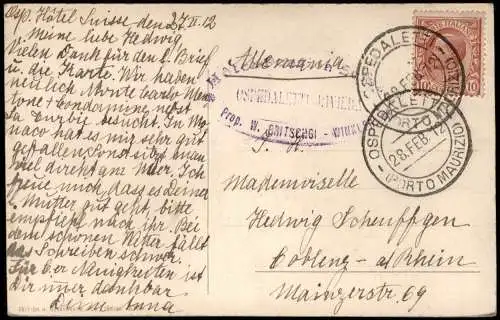 Osp. Hôtel Suisse den 27.II.12
Meine liebe Hedwig
Vielen Dank für den l. Brief
u. die Karte. Wir haben
neulich Monte Carlo Men-
tone + Condamine nebst
La Turbie besucht. In Mo-
naco hat es mir sehr gut
gefallen, sonst sitzt man
viel direkt am Meer. Ich
freue mich dass es Deiner
l. Mutter gut geht, bitte
empfiehl mich ihr. Bei
dem schönen Wetter fällt
das Schreiben schwer.
Für d. Neuigkeiten ist
immer dankbar
Deine Anna
Allemania
HÔTEL SUISSE
OSPEDALETTI-RIVIERA
Prop. W.
OSPEDALETTI
28 FEB. 12
(PORTO MAURIZIO)
OSPEDALETTI
28.FEB.12
(PORTO MAURIZIO)
10 10
Mademoiselle
Hedwig Scheuffgen
Coblenz a/Rhein
Mainzerstr. 69